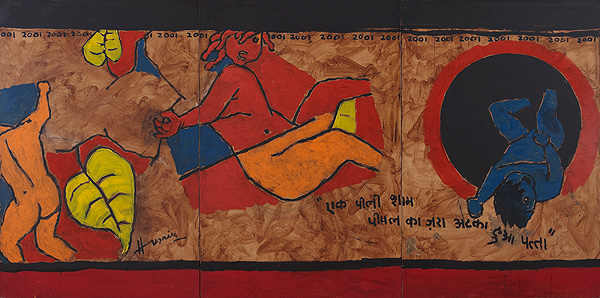 2001 2001 2001 2001 2001 2001 2001 2001 2001 2001 2001 2001 2001 2001 2001 2001 2001 2001 2001
"एक पीली शाम
पीपल का ज़रा अटका
हुआ पत्ता"
Husain